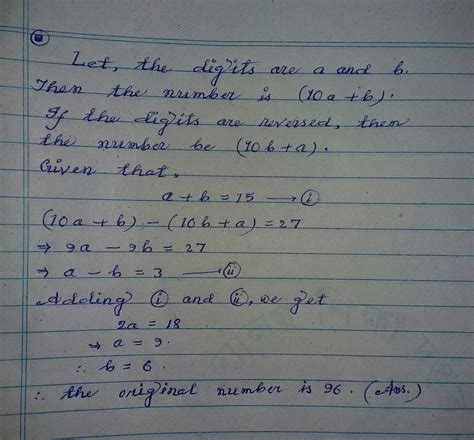 Let, the digits are a and b.
Then the number is (10a+b).
If the digits are reversed, then
the number be (10b+a).
Given that,
a + b = 15 ⟶ (i)
(10a + b) – (10b + a) = 27
⇒ 9a – 9b = 27
⇒ a – b = 3 ⟶ (ii)
Adding (i) and (ii), we get
2a = 18
⇒ a = 9.
∴ b = 6.
∴ the original number is 96. (Ans.)